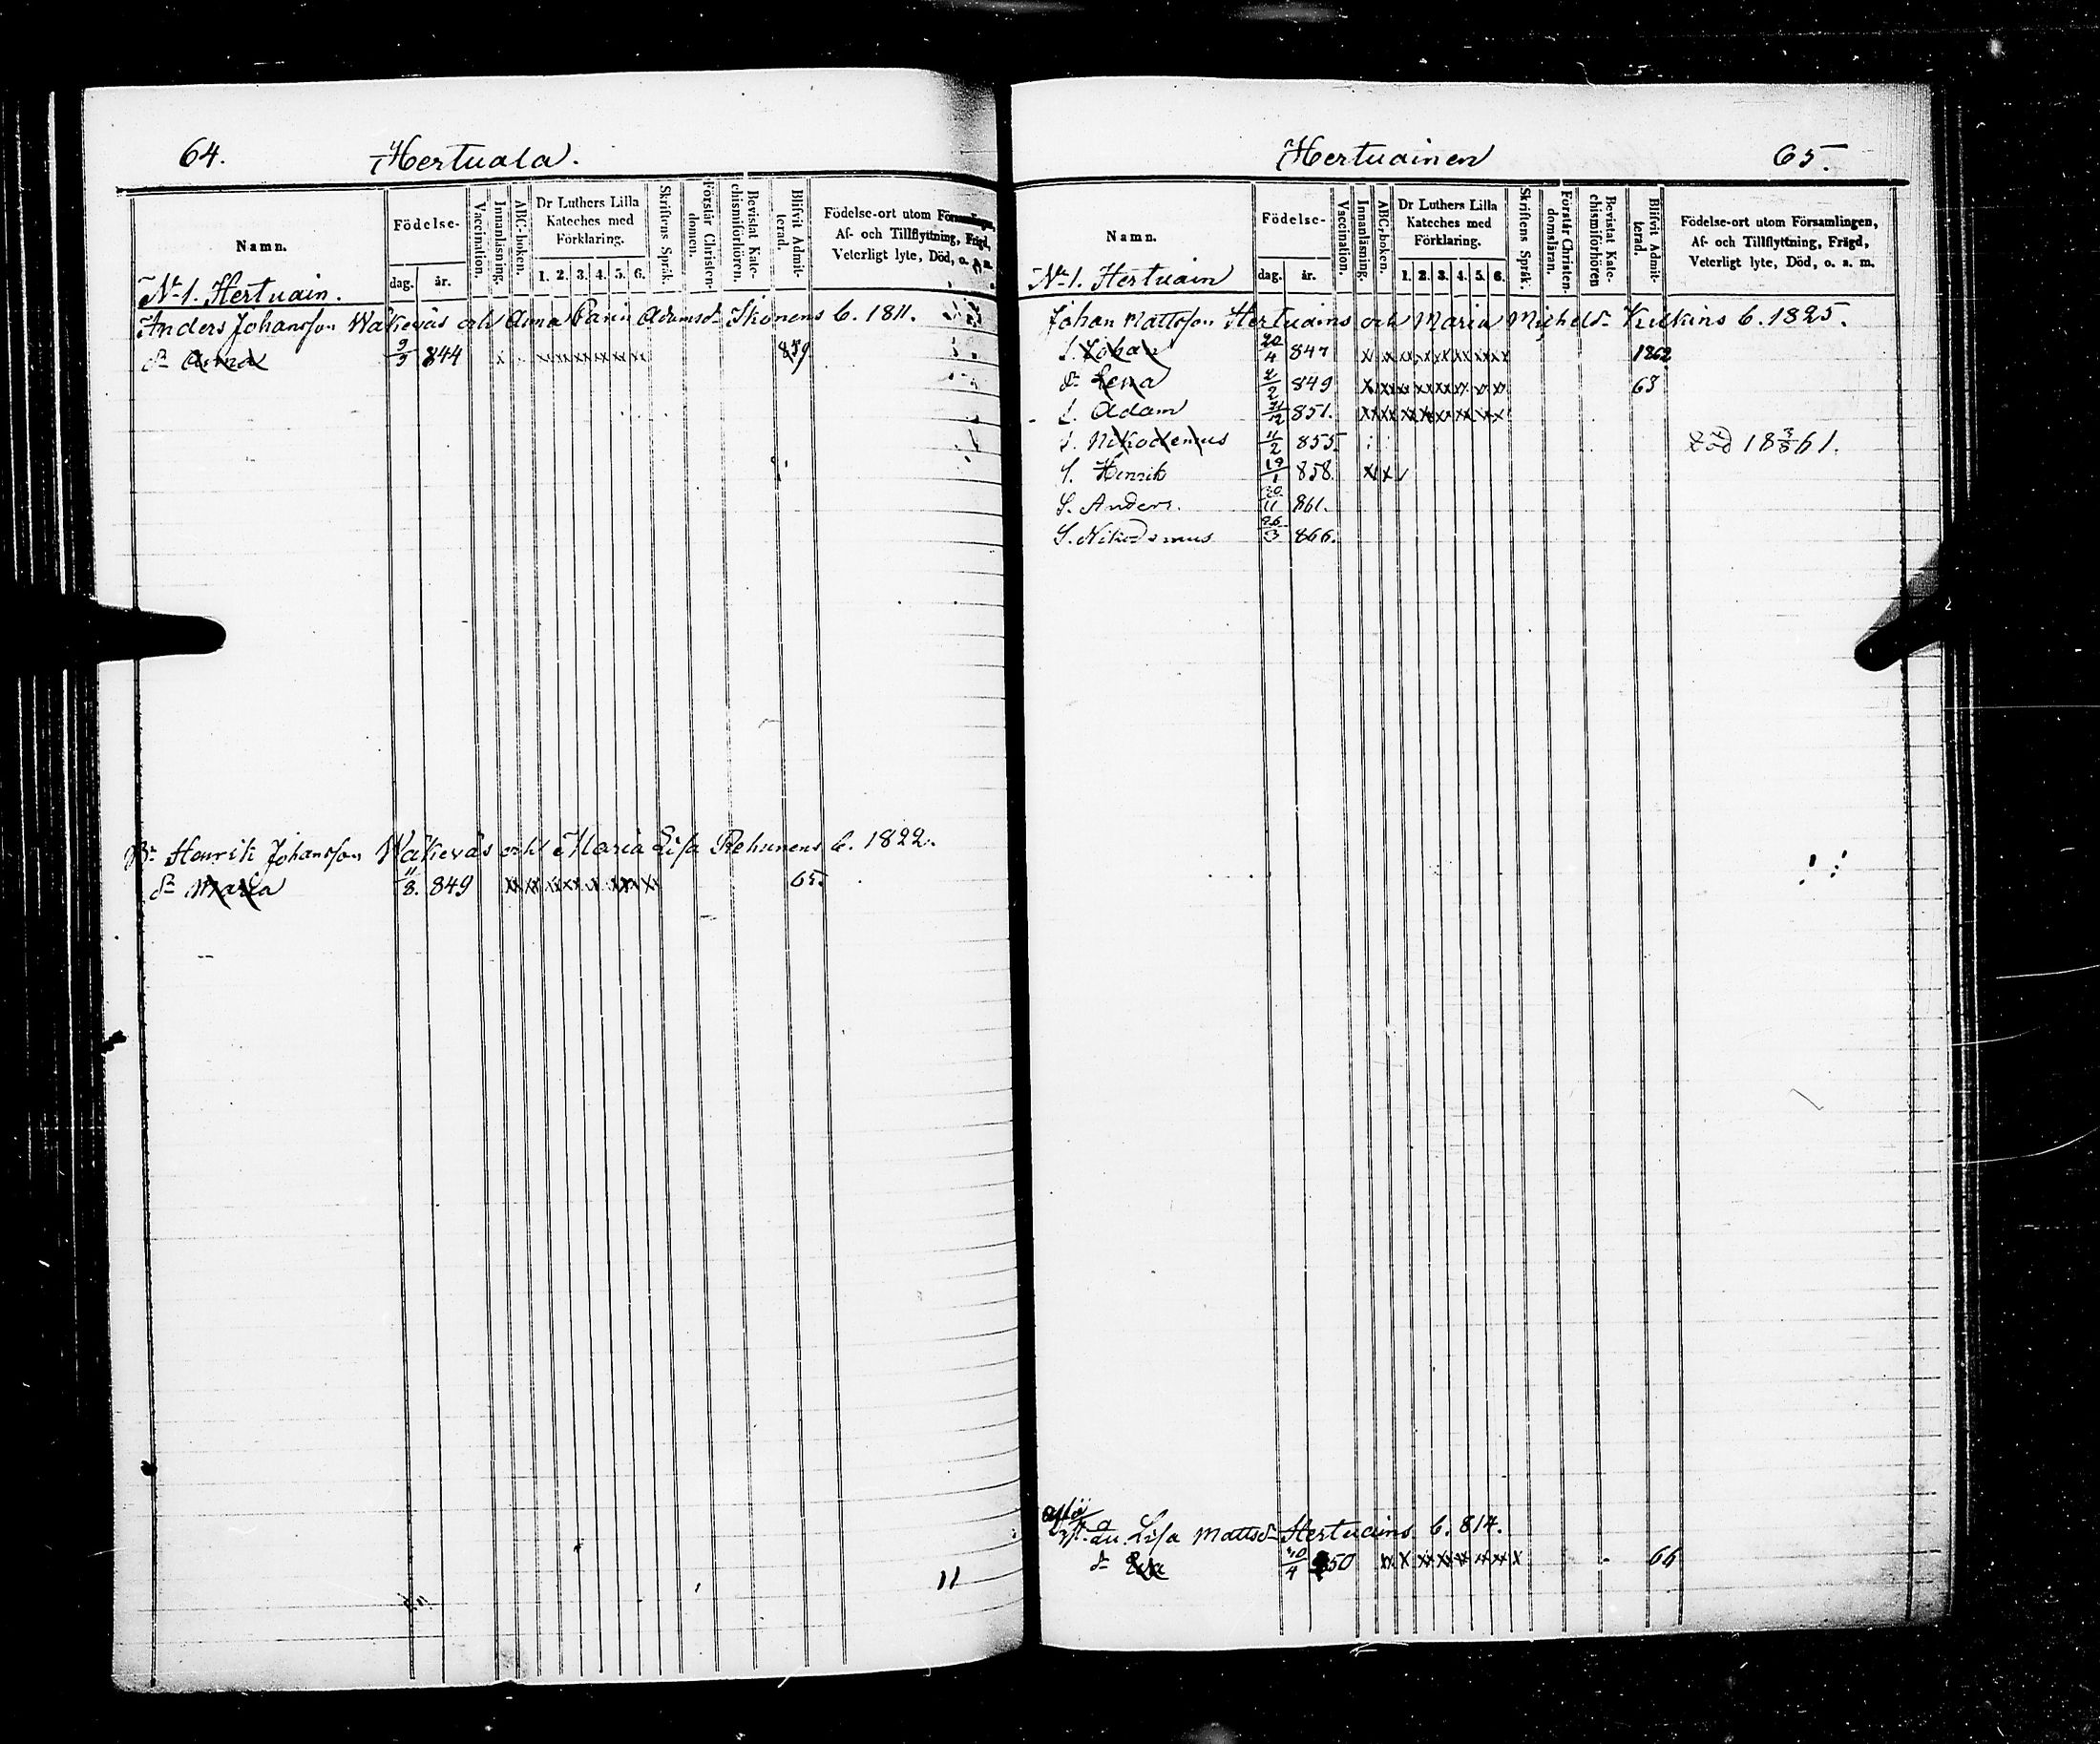 64.
Hertuala.
Namn.
Födelse-
dag.
år.
Vaccination.
Innanläsning.
ABC-boken.
Dr Luthers Lilla
Kateches med
Förklaring.
1. 2. 3. 4. 5. 6.
Skriftens Språk.
Förstår Christen-
domen.
Bevistat Kate-
chismiförhören.
Blifvit Admit-
terad.
Födelse-ort utom Församlingen,
Af- och Tillflyttning, Frägd,
Veterligt lyte, Död, o. a. m.
No 1. Hertuain.
Anders Johansson Wäkeväs och Anna Carin Adamsd. Ikonens 6. 1811.
dr Anna 9/9 844 859
Br Henrik Johansson Wäkeväs och Maria Lisa Rehunens 6. 1822.
dr Maria 11/8. 849 65.
11
Hertuainen
65.
Namn.
Födelse-
dag.
år.
Vaccination.
Innanläsning.
ABC-boken.
Dr Luthers Lilla
Kateches med
Förklaring.
1. 2. 3. 4. 5. 6.
Skriftens Språk.
Förstår Christen-
domsläran.
Bevistat Kate-
chismiförhören
Blifvit Admit-
terad.
Födelse-ort utom Församlingen,
Af- och Tillflyttning, Frägd,
Veterligt lyte, Död, o. a. m.
No 1. Hertuain
Johan Mattsson Hertuains och Maria Michelsd. Kulkins 6. 1825.
S. Johan 20/4 847 1862
dr Lena 2/2 849 63
S. Adam 21/12 851.
S. Nikodemus 11/2 855. död 18 3/8 61.
S. Henrik 19/1 858.
S. Anders. 30/11 861.
S. Nikodemus 26/3 866.
Lisa Mattsd. Hertuains 6. 814.
dr 850 66